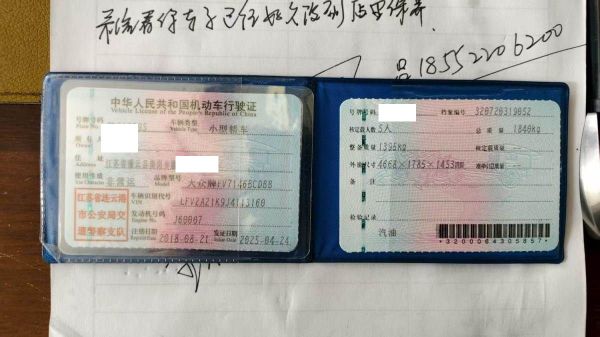 你车子已经好久没到店里保养
18552206200
中华人民共和国机动车行驶证
Vehicle License of the People's Republic of China
号牌号码
Plate No.
车辆类型
Vehicle Type
小型轿车
所有人
Owner
住址
Address
江苏省灌云县
使用性质
Use Character
非营运
品牌型号
Model
大众牌FV7146BCDBB
江苏省连云港
市公安局交
通警察支队
车辆识别代号
VIN
LFV2A21K9J4113160
发动机号码
Engine No.
J60007
注册日期
Register Date
2018-08-21
发证日期
Issue Date
2025-04-24
号牌号码
档案编号
320720319052
核定载人数
5人
总质量
1840kg
整备质量
1395kg
核定载质量
外廓尺寸
4668×1785×1453mm
准牵引总质量
备注
检验记录
汽油
*3200064305857*